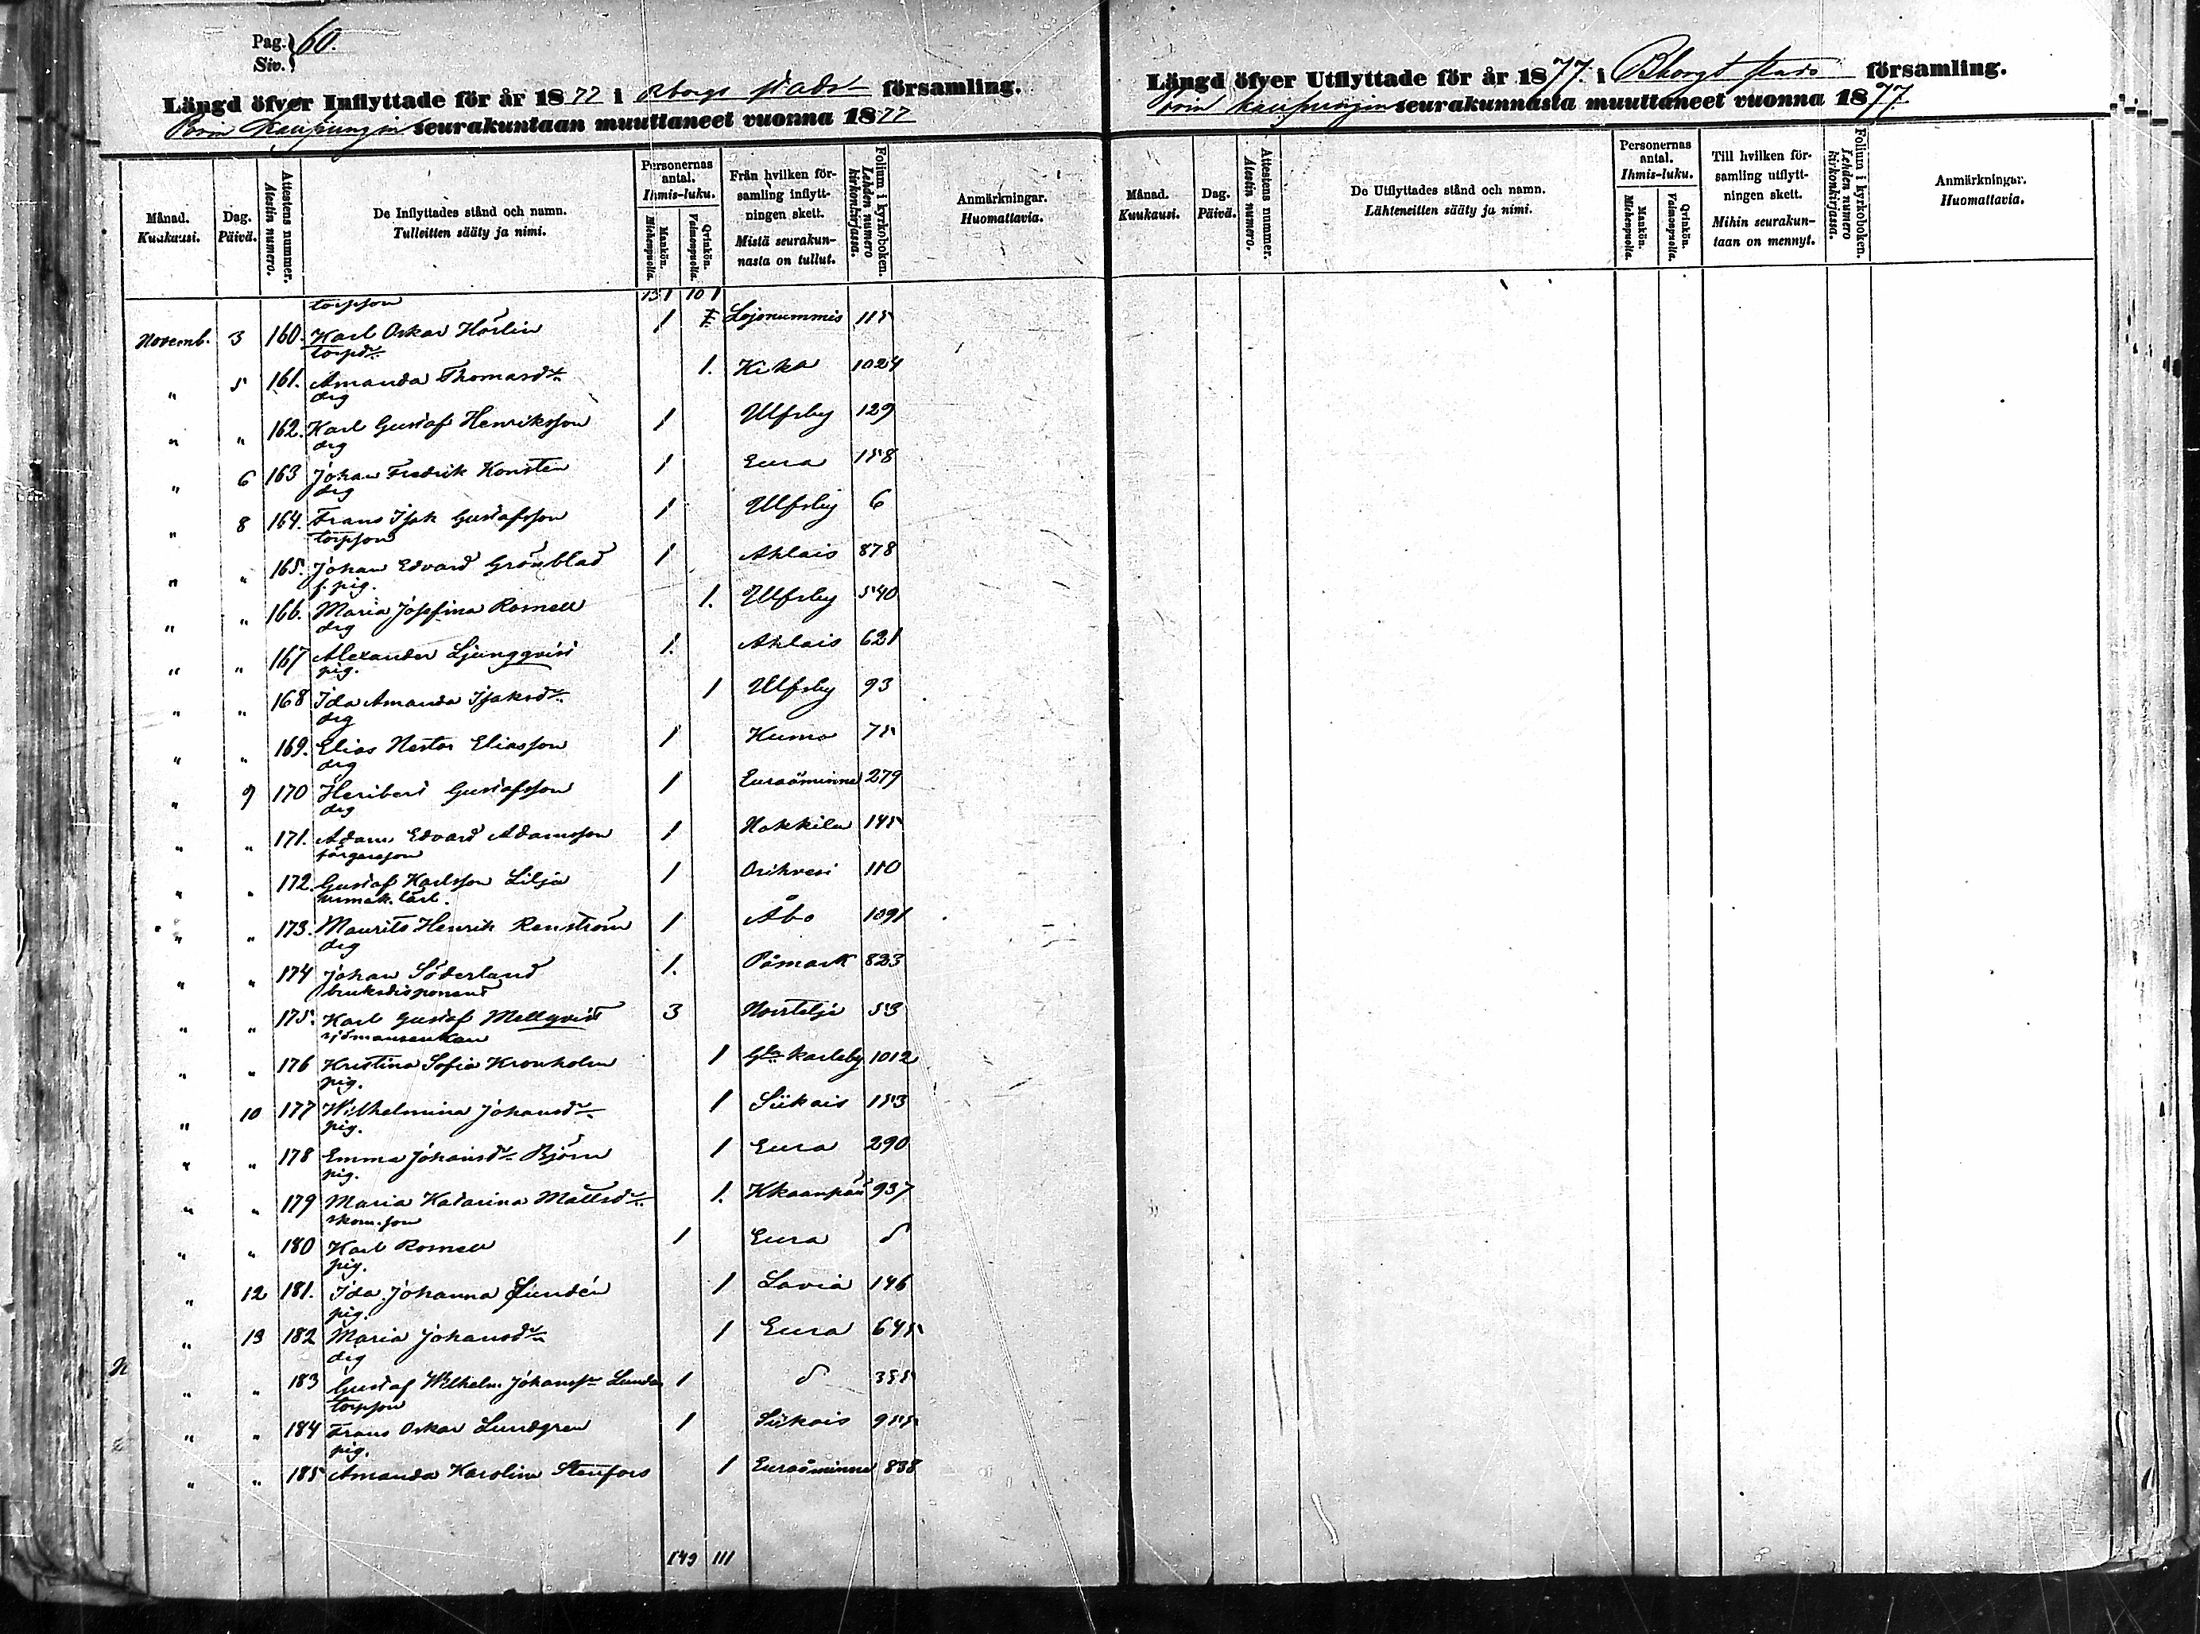 Pag. } 60.
Siv. }
Längd öfver Inflyttade för år 1877 i Bborgs stads församling.
Porin kaupungin seurakuntaan muuttaneet vuonna 1877
Månad. Kuukausi. Dag. Päivä. Attestens nummer. Atestin numero. De Inflyttades stånd och namn. Tulleitten sääty ja nimi. Personernas antal. Ihmis-luku. Mankön. Miehenpuolta. Qvinkön. Vaimonpuolta. Från hvilken församling inflyttningen skett. Mistä seurakunnasta on tullut. Folium i kyrkoboken. Lehden numero kirkonkirjassa. Anmärkningar. Huomattavia.
131 101
torpson
Novemb. 3 160. Karl Oskar Hörlin 1 Lojonummis 115
torpdr
" 5 161. Amanda Thomasdr 1. Kikå 1024
drg
" " 162. Karl Gustaf Henriksson 1 Ulfsby 129
drg
" 6 163 Johan Fredrik Konstén 1 Eura 158
drg
" 8 164. Frans Isak Gustafsson 1 Ulfsby 6
torpson
" " 165. Johan Edvard Grönblad 1 Ahlais 878
f. pig.
" " 166. Maria Josefina Romell 1. Ulfsby 540
drg
" " 167 Alexander Ljungqvist 1. Ahlais 621
pig.
" " 168 Ida Amanda Isaksdr 1 Ulfsby 93
drg
" " 169. Elias Nestor Eliasson 1 Kumo 75
drg
" 9 170 Heribert Gustafsson 1 Euraåminne 279
drg
" " 171. Adam Edvard Adamsson 1 Nakkila 145
färgaresson
" " 172. Gustaf Karlsson Lilja 1 Orihvesi 110
urmak. lärl.
" " 173. Maurits Henrik Renström 1 Åbo 1091
drg
" " 174 Johan Söderlund 1. Påmark 823
bruksdisponent
" " 175. Karl Gustaf Mellqvist 3 Norrtelje 53
sjömansenkan
" " 176 Kristina Sofia Kronholm 1 Gla Karleby 1012
pig.
" 10 177 Wilhelmina Johansdr 1 Siikais 153
pig.
" " 178 Emma Johansdr Björn 1 Eura 290
pig.
" " 179 Maria Katarina Mattsdr 1. Kkaanpää 937
skom. son
" " 180 Karl Romell 1 Eura
pig.
" 12 181. Ida Johanna Lundén 1 Lavia 146
pig.
" 13 182 Maria Johansdr 1 Eura 645
drg
" " 183 Gustaf Wilhelm Johanss 1 355
torpson
" " 184 Frans Oskar Lundgren 1 Siikais 955
pig.
" " 185 Amanda Karolina Stenfors 1 Euraåminne 838
149 111
Längd öfver Utflyttade för år 1877 i Bborgs stads församling.
Porin kaupungin seurakunnasta muuttaneet vuonna 1877
Månad. Kuukausi. Dag. Päivä. Attestens nummer. Atestin numero. De Utflyttades stånd och namn. Lähteneitten sääty ja nimi. Personernas antal. Ihmis-luku. Mankön. Miehenpuolta. Qvinkön. Vaimonpuolta. Till hvilken församling utflyttningen skett. Mihin seurakuntaan on mennyt. Folium i kyrkoboken. Lehden numero kirkonkirjassa. Anmärkningar. Huomattavia.